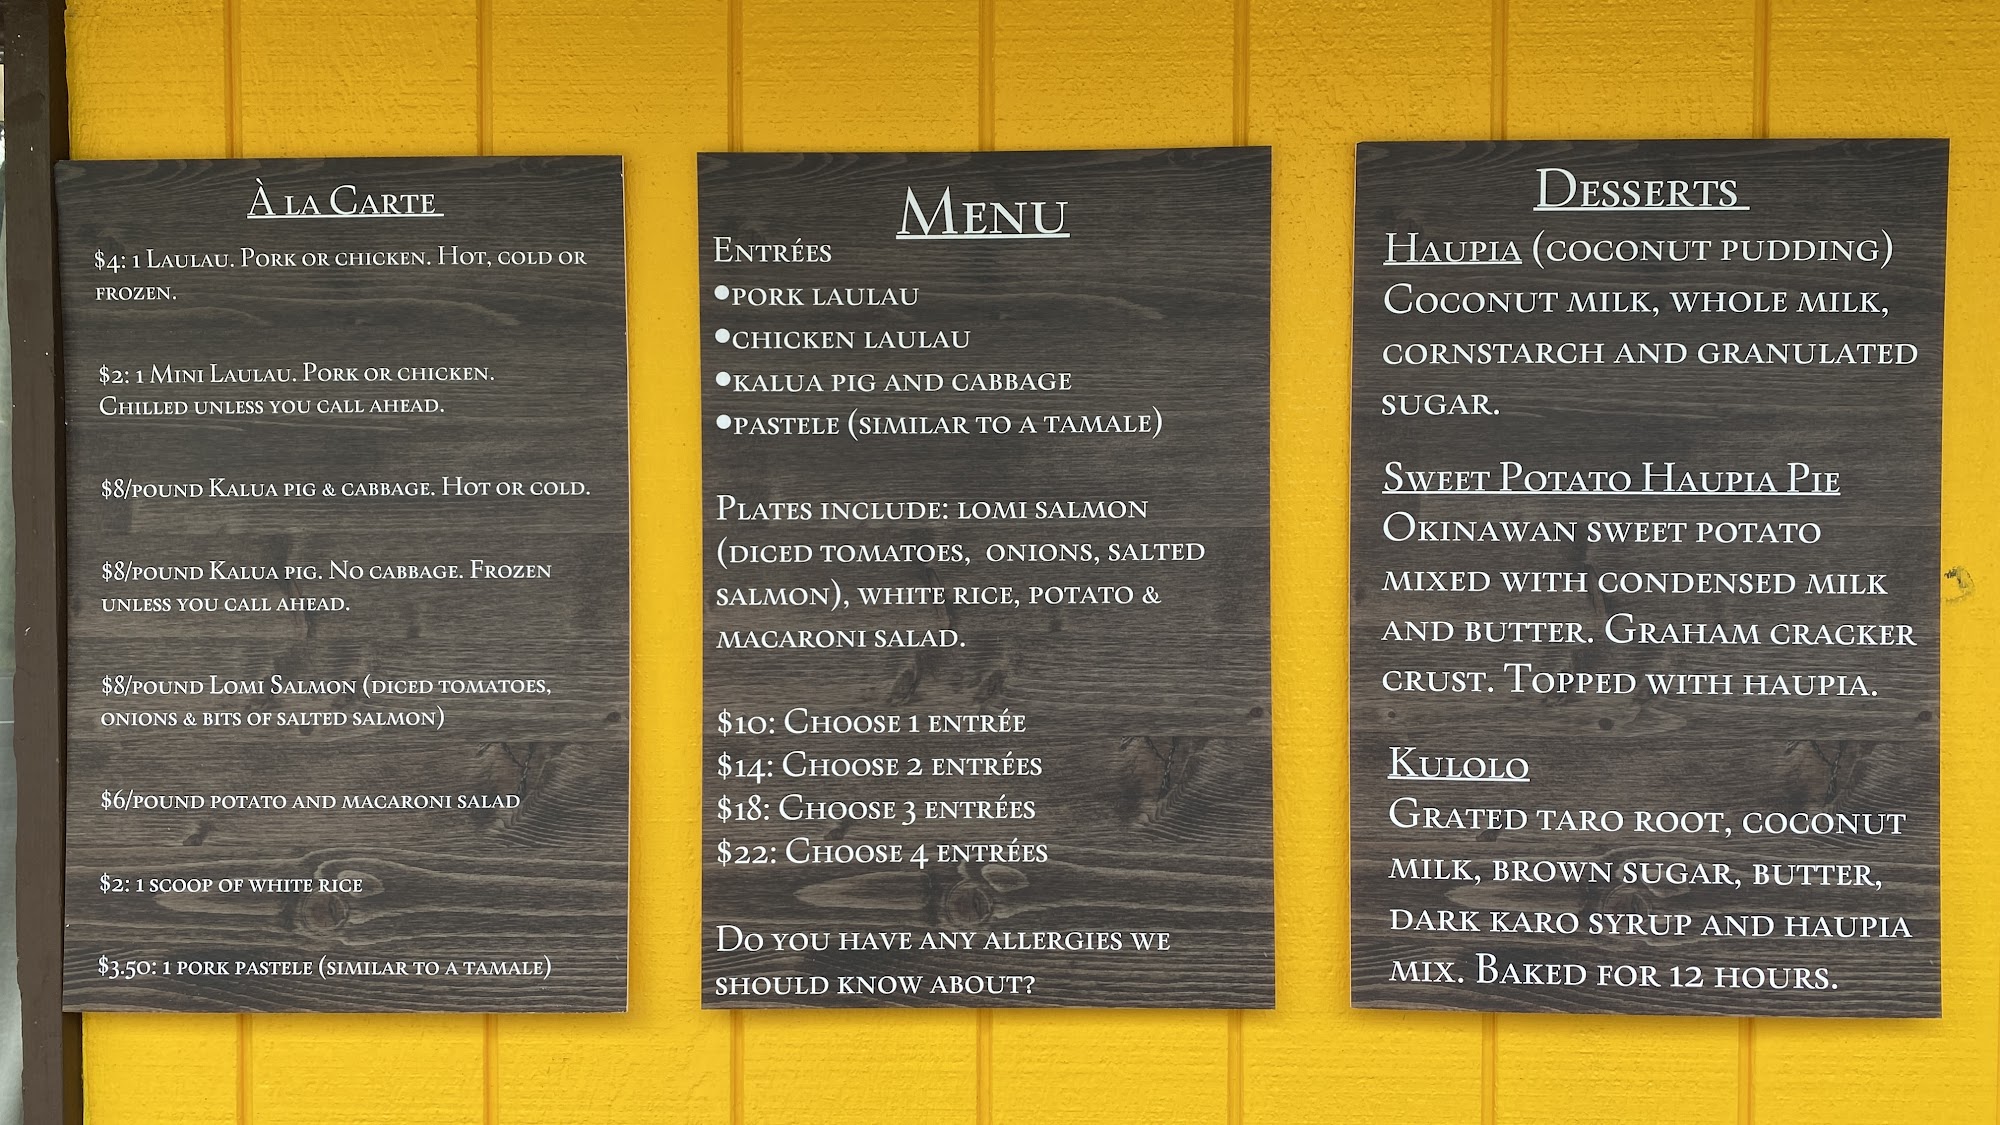 À la Carte
$4: 1 Laulau. Pork or chicken. Hot, cold or
frozen.
$2: 1 Mini Laulau. Pork or chicken.
Chilled unless you call ahead.
$8/pound Kalua pig & cabbage. Hot or cold.
$8/pound Kalua pig. No cabbage. Frozen
unless you call ahead.
$8/pound Lomi Salmon (diced tomatoes,
onions & bits of salted salmon)
$6/pound potato and macaroni salad
$2: 1 scoop of white rice
$3.50: 1 pork pastele (similar to a tamale)
Menu
Entrées
•pork laulau
•chicken laulau
•kalua pig and cabbage
•pastele (similar to a tamale)
Plates include: lomi salmon
(diced tomatoes, onions, salted
salmon), white rice, potato &
macaroni salad.
$10: Choose 1 entrée
$14: Choose 2 entrées
$18: Choose 3 entrées
$22: Choose 4 entrées
Do you have any allergies we
should know about?
Desserts
Haupia (coconut pudding)
Coconut milk, whole milk,
cornstarch and granulated
sugar.
Sweet Potato Haupia Pie
Okinawan sweet potato
mixed with condensed milk
and butter. Graham cracker
crust. Topped with haupia.
Kulolo
Grated taro root, coconut
milk, brown sugar, butter,
dark karo syrup and haupia
mix. Baked for 12 hours.